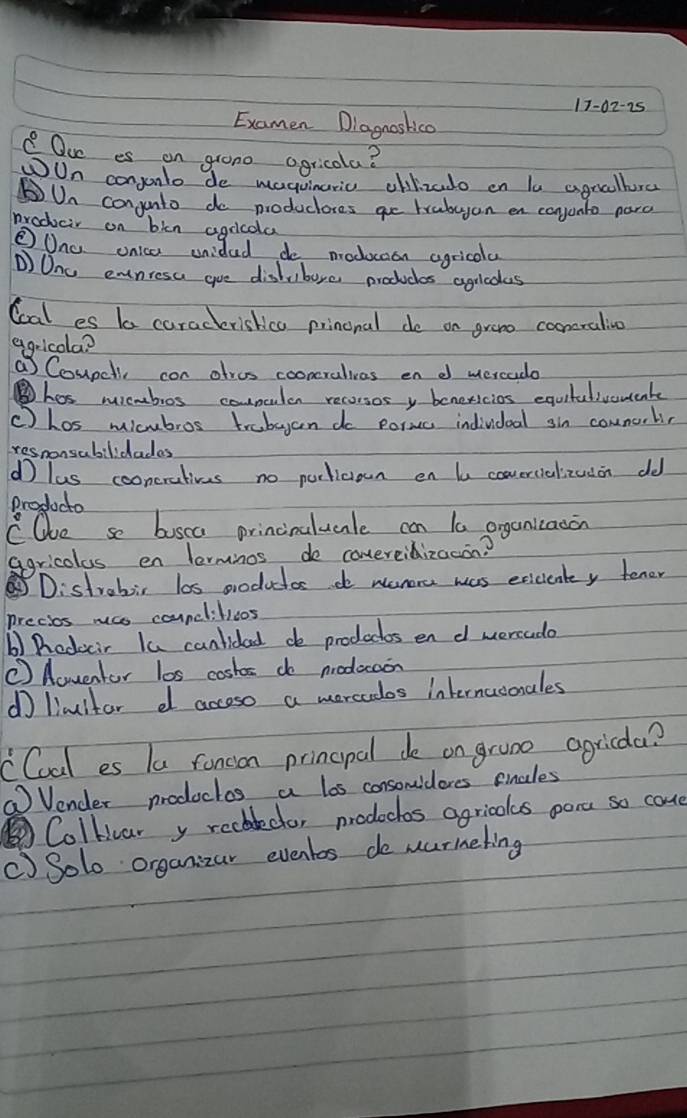 17-02-25
Examen Diagnostico
¿Que es un grupo agricola?
a) Un conjunto de maquinaria utilizado en la agricultura
b) Un conjunto de productores que trabajan en conjunto para
producir un bien agricola
c) Una unica unidad de produccion agricola
D) Una empresa que distribuye productos agricolas
Cual es la caracteristica principal de un grupo cooperativo
agricola?
a) Competir con otras cooperativas en el mercado
B Los miembros comparten recursos y beneficios equitativamente
c) Los miembros trabajan de forma individual sin compartir
responsabilidades
d) las cooperativas no participan en la comercialización del
producto
¿Que se busca principalmente con la organización
agricolas en terminos de comercialización?
a) Distrubir los productos de manera mas eficiente y tener
precios mas competitivos
b) Reducir la cantidad de productos en el mercado
c) Aumentar los costos de produccion
d) limitar el acceso a mercados internacionales
¿Cual es la funcion principal de un grupo agricola?
a) Vender productos a los consumidores finales
b) Cultivar y recolectar productos agricolas para su come
c) Solo organizar eventos de marketing